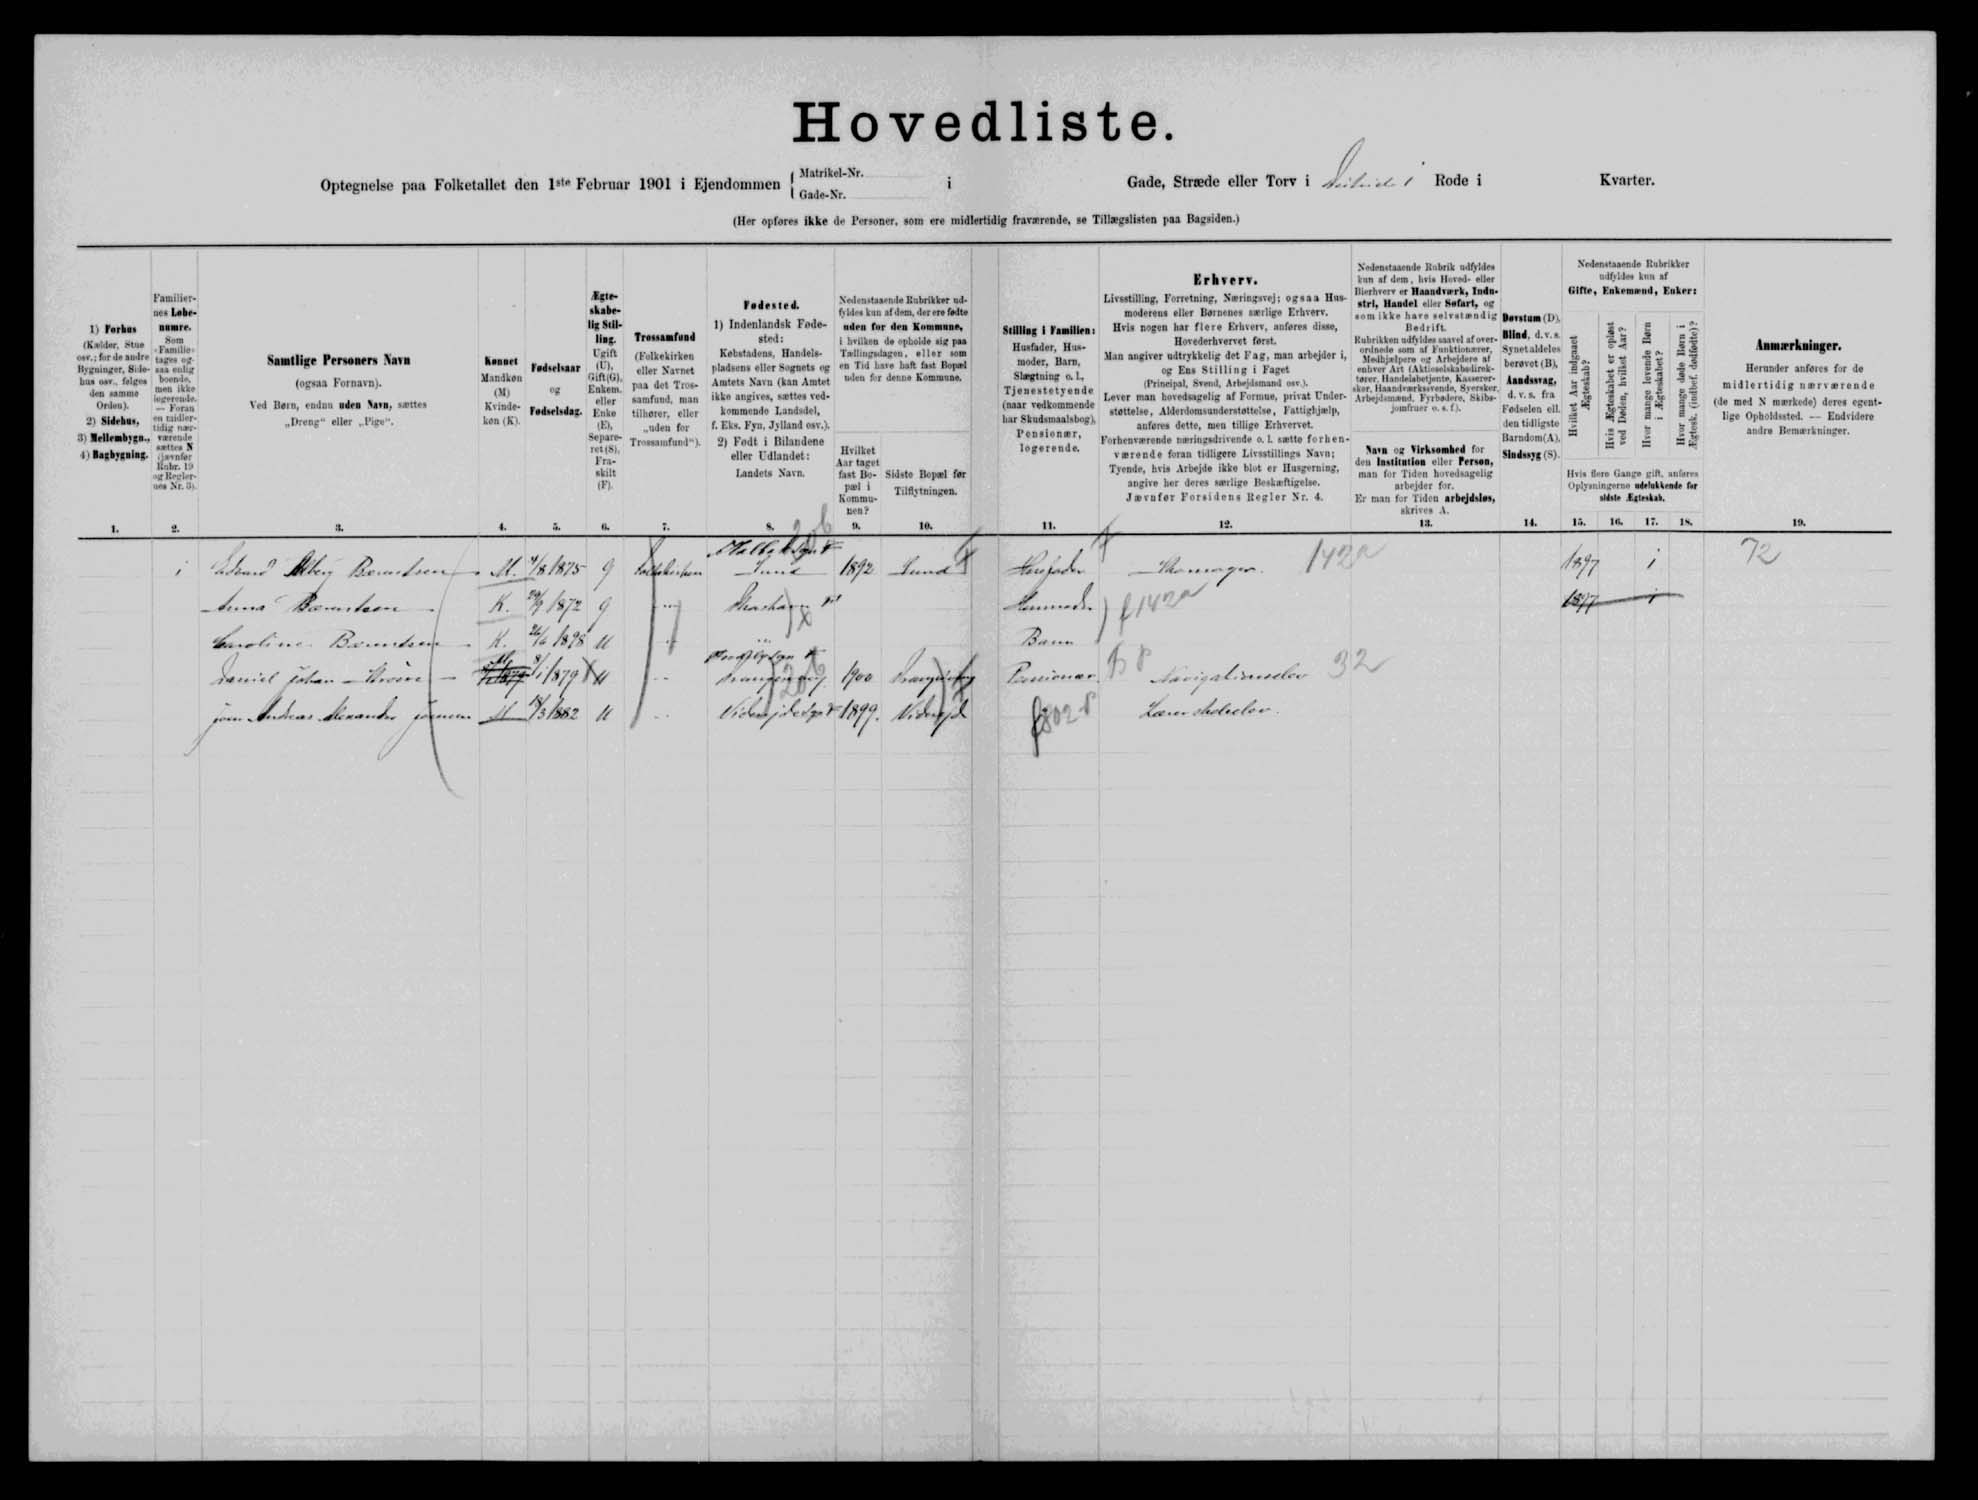 Hovedliste.
Optegnelse paa Folketallet den 1ste Februar 1901 i Ejendommen { Matrikel-Nr. Gade-Nr. i Gade, Stræde eller Torv i Distrikt 1 Rode i Kvarter.
(Her opføres ikke de Personer, som ere midlertidig fraværende, se Tillægslisten paa Bagsiden.)
1) Forhus
(Kælder, Stue
osv.; for de andre
Bygninger, Side-
hus osv., følges
den samme
Orden).
2) Sidehus,
3) Mellembygn.,
4) Bagbygning.
1.
Familier-
nes Løbe-
numre.
Som
Familie
tages og-
saa enlig
boende,
men ikke
logerende.
— Foran
en midler-
tidig nær-
værende
sættes N
(jævnfør
Rubr. 19
og Regler-
nes Nr. 3).
2.
Samtlige Personers Navn
(ogsaa Fornavn).
Ved Børn, endnu uden Navn, sættes
„Dreng“ eller „Pige“.
3.
Kønnet
Mandkøn
(M)
Kvinde-
køn (K).
4.
Fødselsaar
og
Fødselsdag.
5.
Ægte-
skabe-
lig Stil-
ling.
Ugift
(U),
Gift(G),
Enkem.
eller
Enke
(E),
Separe-
ret (S),
Fra-
skilt
(F).
6.
Trossamfund
(Folkekirken
eller Navnet
paa det Tros-
samfund, man
tilhører, eller
„uden for
Trossamfund“).
7.
Fødested.
1) Indenlandsk Føde-
sted:
Købstadens, Handels-
pladsens eller Sognets og
Amtets Navn (kan Amtet
ikke angives, sættes ved-
kommende Landsdel,
f. Eks. Fyn, Jylland osv.).
2) Født i Bilandene
eller Udlandet:
Landets Navn.
8.
Nedenstaaende Rubrikker ud-
fyldes kun af dem, der ere fødte
uden for den Kommune,
i hvilken de opholde sig paa
Tællingsdagen, eller som
en Tid have haft fast Bopæl
uden for denne Kommune.
Hvilket
Aar taget
fast Bo-
pæl i
Kommu-
nen?
9.
Sidste Bopæl før
Tilflytningen.
10.
Stilling i Familien:
Husfader, Hus-
moder, Barn,
Slægtning o. l.,
Tjenestetyende
(naar vedkommende
har Skudsmaalsbog),
Pensionær,
logerende.
11.
Erhverv.
Livsstilling, Forretning, Næringsvej; ogsaa Hus-
moderens eller Børnenes særlige Erhverv.
Hvis nogen har flere Erhverv, anføres disse,
Hovederhvervet først.
Man angiver udtrykkelig det Fag, man arbejder i,
og Ens Stilling i Faget
(Principal, Svend, Arbejdsmand osv.).
Lever man hovedsagelig af Formue, privat Under-
støttelse, Alderdomsunderstøttelse, Fattighjælp,
anføres dette, men tillige Erhvervet.
Forhenværende næringsdrivende o. l. sætte forhen-
værende foran tidligere Livsstillings Navn;
Tyende, hvis Arbejde ikke blot er Husgerning,
angive her deres særlige Beskæftigelse.
Jævnfør Forsidens Regler Nr. 4.
12.
Nedenstaaende Rubrik udfyldes
kun af dem, hvis Hoved- eller
Bierhverv er Haandværk, Indu-
stri, Handel eller Søfart, og
som ikke have selvstændig
Bedrift.
Rubrikken udfyldes saavel af over-
ordnede som af Funktionærer,
Medhjælpere og Arbejdere af
enhver Art (Aktieselskabsdirek-
tører, Handelsbetjente, Kasserer-
sker, Haandværkssvende, Syersker,
Arbejdsmænd, Fyrbødere, Skibs-
jomfruer o. s. f.).
Navn og Virksomhed for
den Institution eller Person,
man for Tiden hovedsagelig
arbejder for.
Er man for Tiden arbejdsløs,
skrives A.
13.
Døvstum (D),
Blind, d. v. s.
Synet aldeles
berøvet (B),
Aandssvag,
d. v. s. fra
Fødselen ell.
den tidligste
Barndom(A),
Sindssyg (S).
14.
Nedenstaaende Rubrikker
udfyldes kun af
Gifte, Enkemænd, Enker:
Hvilket Aar indgaaet
Ægteskab?
Hvis Ægteskabet er opløst
ved Døden, hvilket Aar?
Hvor mange levende Børn
i Ægteskabet?
Hvor mange døde Børn i
Ægtesk. (indbef. dødfødte)?
Hvis flere Gange gift, anføres
Oplysningerne udelukkende for
sidste Ægteskab.
15. 16. 17. 18.
Anmærkninger.
Herunder anføres for de
midlertidig nærværende
(de med N mærkede) deres egent-
lige Opholdssted. — Endvidere
andre Bemærkninger.
19.
i Edvard Berentsen M. 4/8 1875 g Folkekirken Sund 1892 Sund Husfader Skomager. 142a 1897 i 72
Anna Berentsen K. 1872 g Thorshavn Husmoder f142a 1897 i
Caroline Berentsen K. 1898 U Barn
Daniel Johan M 1879 U 1900 Pensionær Navigationselev 32
Joen Andreas Alexander Joensen M 3 1882 U 1899. f802 Lærerskoleelev.